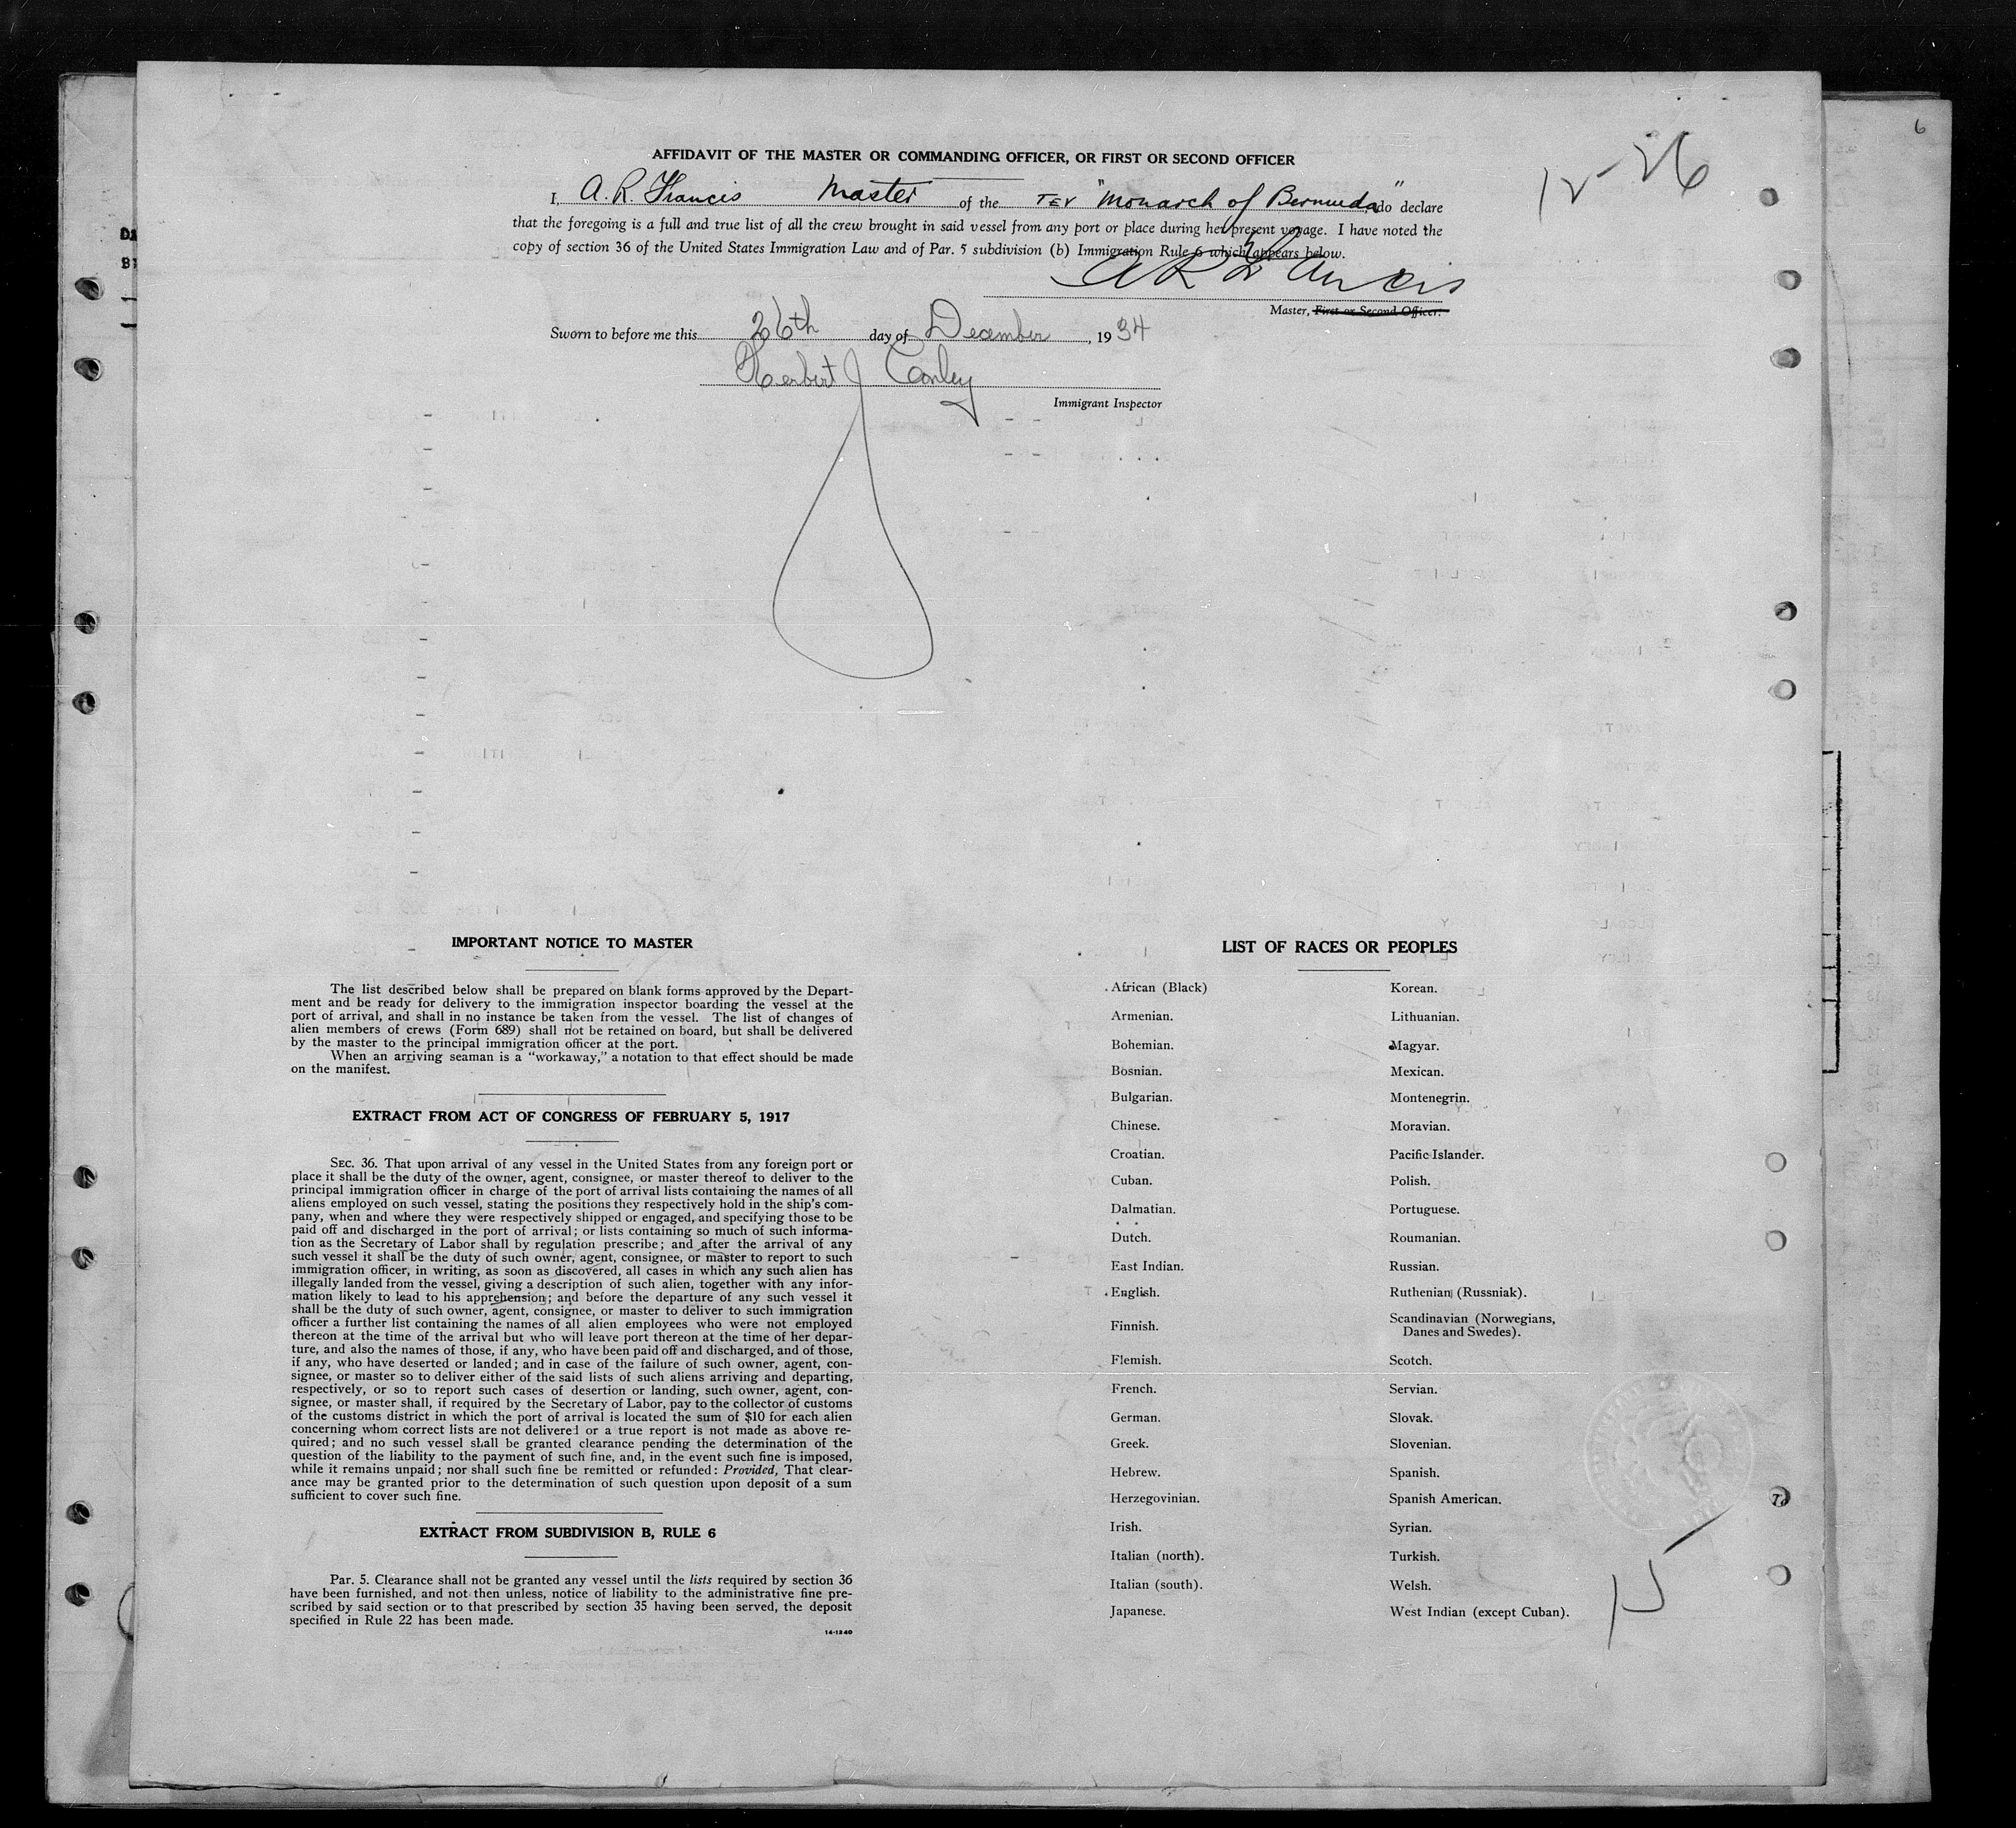 6
12-26
AFFIDAVIT OF THE MASTER OR COMMANDING OFFICER, OR FIRST OR SECOND OFFICER
I, A. R. Francis Master of the TEV "Monarch of Bermuda" do declare
that the foregoing is a full and true list of all the crew brought in said vessel from any port or place during her present voyage. I have noted the
copy of section 36 of the United States Immigration Law and of Par. 5 subdivision (b) Immigration Rule 6 which appears below.
A R Francis
Master, First or Second Officer.
Sworn to before me this 26th day of December, 1934
Herbert J Conley
Immigrant Inspector
IMPORTANT NOTICE TO MASTER
The list described below shall be prepared on blank forms approved by the Depart-
ment and be ready for delivery to the immigration inspector boarding the vessel at the
port of arrival, and shall in no instance be taken from the vessel. The list of changes of
alien members of crews (Form 689) shall not be retained on board, but shall be delivered
by the master to the principal immigration officer at the port.
When an arriving seaman is a "workaway," a notation to that effect should be made
on the manifest.
EXTRACT FROM ACT OF CONGRESS OF FEBRUARY 5, 1917
SEC. 36. That upon arrival of any vessel in the United States from any foreign port or
place it shall be the duty of the owner, agent, consignee, or master thereof to deliver to the
principal immigration officer in charge of the port of arrival lists containing the names of all
aliens employed on such vessel, stating the positions they respectively hold in the ship's com-
pany, when and where they were respectively shipped or engaged, and specifying those to be
paid off and discharged in the port of arrival; or lists containing so much of such informa-
tion as the Secretary of Labor shall by regulation prescribe; and after the arrival of any
such vessel it shall be the duty of such owner, agent, consignee, or master to report to such
immigration officer, in writing, as soon as discovered, all cases in which any such alien has
illegally landed from the vessel, giving a description of such alien, together with any infor-
mation likely to lead to his apprehension; and before the departure of any such vessel it
shall be the duty of such owner, agent, consignee, or master to deliver to such immigration
officer a further list containing the names of all alien employees who were not employed
thereon at the time of the arrival but who will leave port thereon at the time of her depar-
ture, and also the names of those, if any, who have been paid off and discharged, and of those,
if any, who have deserted or landed; and in case of the failure of such owner, agent, con-
signee, or master so to deliver either of the said lists of such aliens arriving and departing,
respectively, or so to report such cases of desertion or landing, such owner, agent, con-
signee, or master shall, if required by the Secretary of Labor, pay to the collector of customs
of the customs district in which the port of arrival is located the sum of $10 for each alien
concerning whom correct lists are not delivered or a true report is not made as above re-
quired; and no such vessel shall be granted clearance pending the determination of the
question of the liability to the payment of such fine, and, in the event such fine is imposed,
while it remains unpaid; nor shall such fine be remitted or refunded: Provided, That clear-
ance may be granted prior to the determination of such question upon deposit of a sum
sufficient to cover such fine.
EXTRACT FROM SUBDIVISION B, RULE 6
Par. 5. Clearance shall not be granted any vessel until the lists required by section 36
have been furnished, and not then unless, notice of liability to the administrative fine pre-
scribed by said section or to that prescribed by section 35 having been served, the deposit
specified in Rule 22 has been made.
14-1240
LIST OF RACES OR PEOPLES
African (Black)
Armenian.
Bohemian.
Bosnian.
Bulgarian.
Chinese.
Croatian.
Cuban.
Dalmatian.
Dutch.
East Indian.
English.
Finnish.
Flemish.
French.
German.
Greek.
Hebrew.
Herzegovinian.
Irish.
Italian (north).
Italian (south).
Japanese.
Korean.
Lithuanian.
Magyar.
Mexican.
Montenegrin.
Moravian.
Pacific Islander.
Polish.
Portuguese.
Roumanian.
Russian.
Ruthenian (Russniak).
Scandinavian (Norwegians,
Danes and Swedes).
Scotch.
Servian.
Slovak.
Slovenian.
Spanish.
Spanish American.
Syrian.
Turkish.
Welsh.
West Indian (except Cuban).